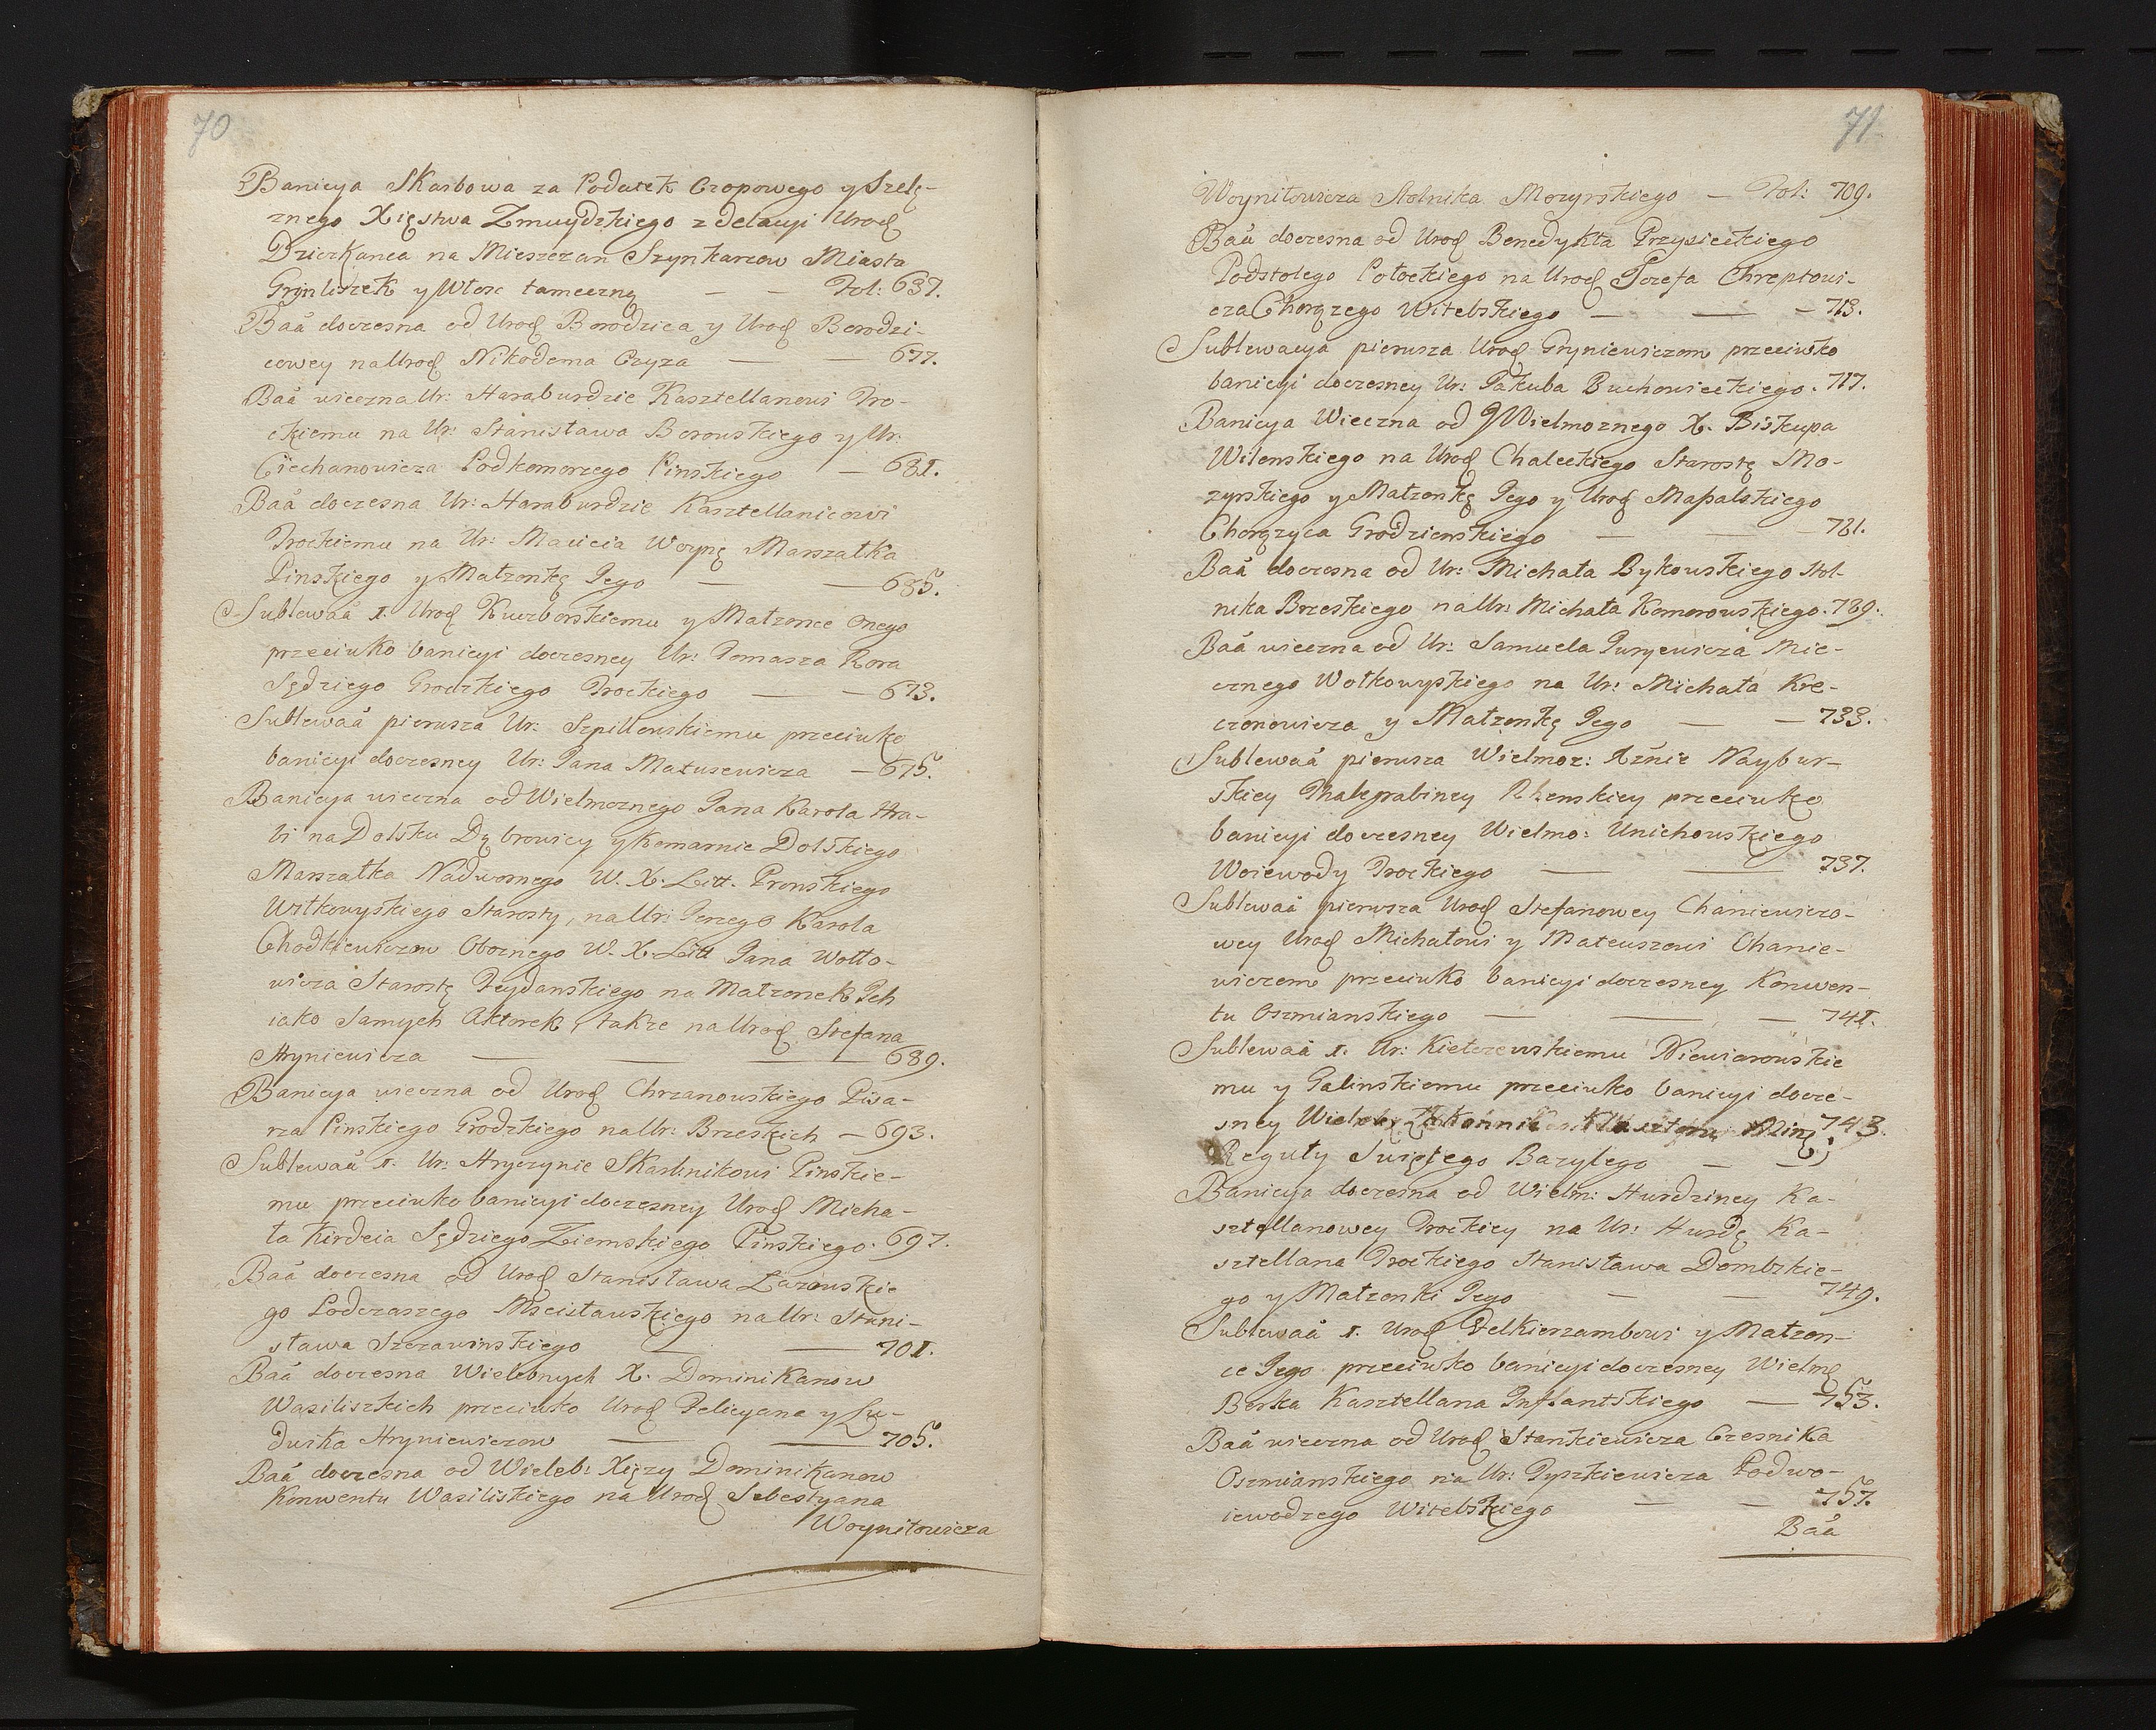 70
Banicya Skarbowa za Podatek Czopowego y Szelę-
żnego Xięstwa Zmuydzkiego z delacyi Urod
Dzierkanca na Mieszczan Szynkarzow Miasta
Grynliszek y Wtore tameczną — — Fol: 637.
Baâ doczesna od Urod Borodzica y Urod Borodzi-
cowey na Urod Nikodema Czyza — — 677.
Baâ wieczna Ur: Haraburdzie Kasztellanowi Tro-
ckiemu na Ur: Stanisława Borowskiego y Ur:
Ciechanowicza Podkomorzego Pinskiego — 681.
Baâ doczesna Ur: Haraburdzie Kasztellanicowi
Trockiemu na Ur: Macieia Woynę Marszałka
Pinskiego y Małzonkę Jego — — 685.
Sublewaâ 1. Urod Kuczborskiemu y Małzonce onego
przeciwko banicyi doczesney Ur: Tomasza Rora
Sędziego Grodzkiego Trockiego — — 673.
Sublewaâ pierwsza Ur: Szpillewskiemu przeciwko
banicyi doczesney Ur: Jana Matusewicza — 675.
Banicya wieczna od Wielmoznego Jana Karola Hra-
bi na Dolsku Dąbrowicy y Komarnie Dolskiego
Marszałka Nadwornego W. X. Litt. Pronskiego
Wiłkowyskiego Starosty, na Ur: Jerzego Karola
Chodkiewiczow Oboznego W. X. Litt Jana Wołło-
wicza Starostę Peydanskiego na Małzonek Jch
iako Samych Aktorek, takze na Urod Stefana
Hryniewicza — — — 689.
Banicya wieczna od Urod Chrzanowskiego Pisa-
rza Pinskiego Grodzkiego na Ur: Brzeskich — 693.
Sublewaâ 1. Ur: Hryczynie Skarbnikowi Pinskie-
mu przeciwko banicyi doczesney Urod Micha-
ła Kirdeia Sędziego Ziemskiego Pinskiego. 697.
Baâ doczesna od Urod Stanisława Lazowskie
go Podczaszego Mscisławskiego na Ur: Stani-
sława Szczawinskiego — — 701.
Baâ doczesna Wielebnych X. Dominikanow
Wasiliszkich przeciwko Urod Felicyana y Lu-
dwika Hryniewiczow — — 705.
Baâ doczesna od Wieleb: Xięzy Dominikanow
Konwentu Wasiliskiego na Urod Sebestyana
Woyniłowicza
71
Woyniłowicza Stolnika Mozyrskiego — Fol: 709.
Baâ doczesna od Urod Benedykta Przysieckiego
Podstolego Połockiego na Urod Jozefa Chreptowi-
cza Chorązego Witebskiego — — — 713.
Sublewacya pierwsza Urod Gryniewiczom przeciwko
banicyi doczesney Ur: Jakuba Buchowieckiego. 717.
Banicya Wieczna od JWielmoznego X. Biskupa
Wilenskiego na Urod Chaleckiego Starostę Mo-
zyrskiego y Małzonkę Jego y Urod Massalskiego
Chorązyca Grodzienskiego — — — 721.
Baâ doczesna od Ur: Michała Bykowskiego Stol-
nika Brzeskiego na Ur: Michała Komorowskiego. 729.
Baâ wieczna od Ur: Samuela Juryewicza Mie-
cznego Wołkowyskiego na Ur: Michała Kre-
czonowicza y Małzonkę Jego — — 733.
Sublewaâ pierwsza Wielmoz: Xznie Naybur-
skiey Phalcgrabiney Rhenskiey przeciwko
banicyi doczesney Wielmo: Unichowskiego
Woiewody Trockiego — — 737.
Sublewaâ pierwsza Urod Stefanowey Chaniewiczo-
wey Urod Michałowi y Mateuszowi Chanie-
wiczom przeciwko banicyi doczesney Konwen-
tu Oszmianskiego — — — 741.
Sublewaâ 1. Ur: Kiełczewskiemu Niewiarowskie
mu y Galinskiemu przeciwko banicyi docze-
sney 743.
Reguły Swiętego Bazylego — —
Banicya doczesna od Wielm: Hurdziney Ka-
sztellanowey Trockiey na Ur: Hurdę Ka-
sztellana Trockiego Stanisława Dembskie-
go y Małzonki Jego — — 749.
Sublewaâ 1. Urod Felkierzambowi y Małzon-
ce Jego przeciwko banicyi doczesney Wielm
Borka Kasztellana Jnflantskiego — 753.
Baâ wieczna od Urod Stankiewicza Czesnika
Oszmianskiego na Ur: Tyszkiewicza Podwo-
iewodzego Witebskiego — — 757.
Baâ